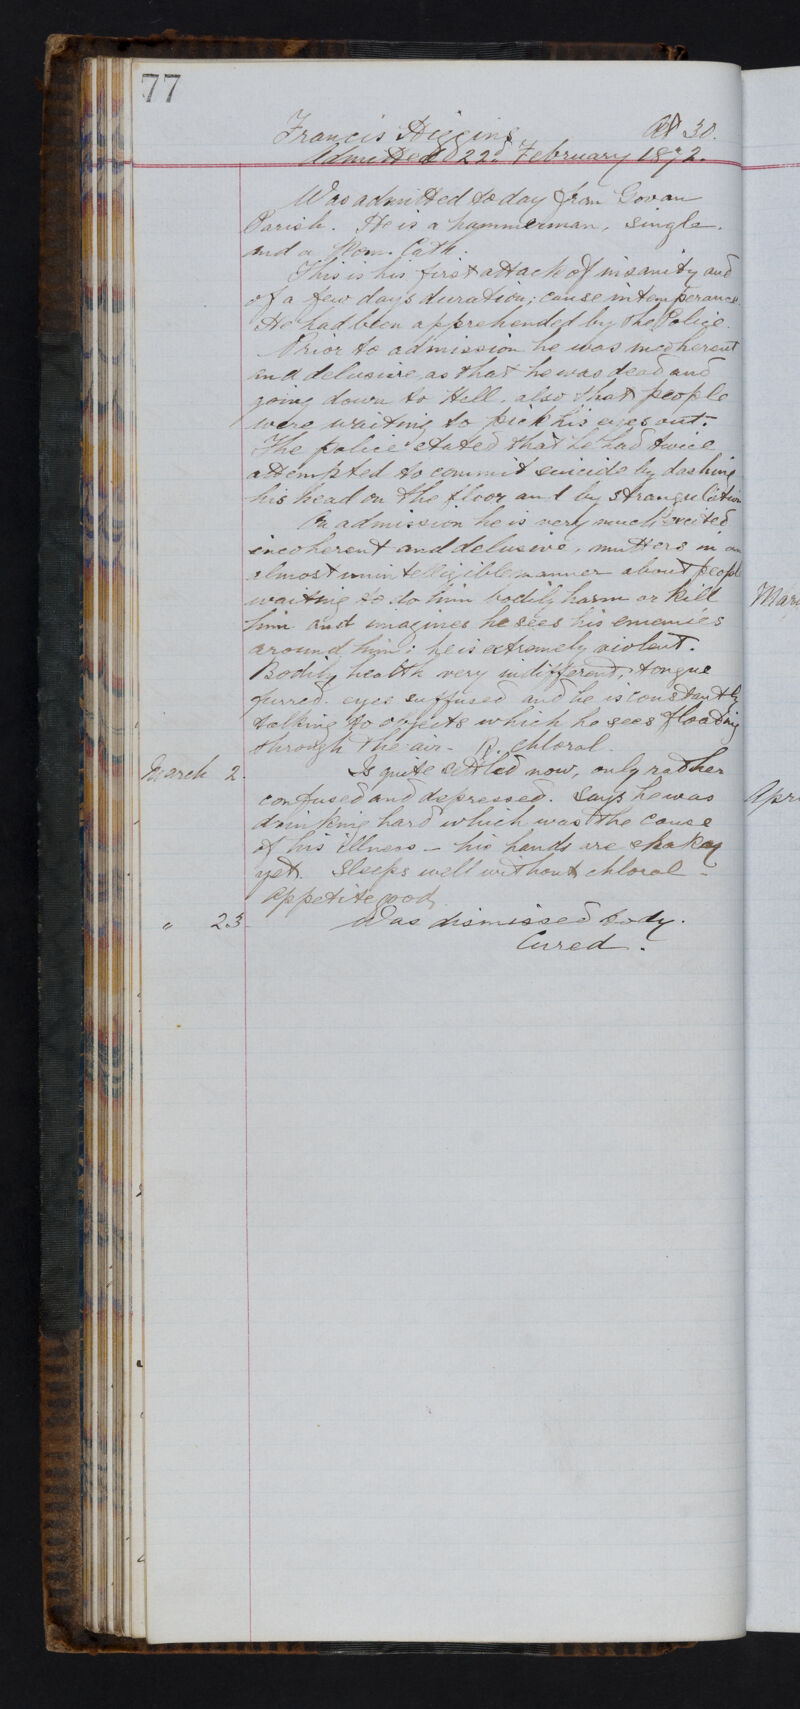 77
Francis Higgins Æt 30.
Admitted 22d February 1872.
Was admitted to day from Govan
Parish. He is a hammerman, single.
and a Rom. Cath.
This is his first attack of insanity and
of a few days duration; cause intemperance.
He had been apprehended by the Police.
Prior to admission he was incoherent
and delusive, as that he was dead and
going down to Hell, also that people
were waiting to pick his eyes out.
The police stated that he had twice
attempted to commit suicide by dashing
his head on the floor and by strangulation
On admission he is very much excited
incoherent and delusive, mutters in an
almost unintelligible manner about people
waiting to do him bodily harm or kill
him and imagines he sees his enemies
around him; he is extremely violent.
Bodily health very indifferent, tongue
furred. eyes suffused and he is constantly
talking to objects which he sees floating
through the air - R. Chloral.
March 2. Is quite settled now, only rather
confused and depressed. Says he was
drinking hard which was the cause
of his illness - his hands are shakey
yet. Sleeps well without chloral -
Appetite good
" 23 Was dismissed today.
Cured.
Mar
Apri